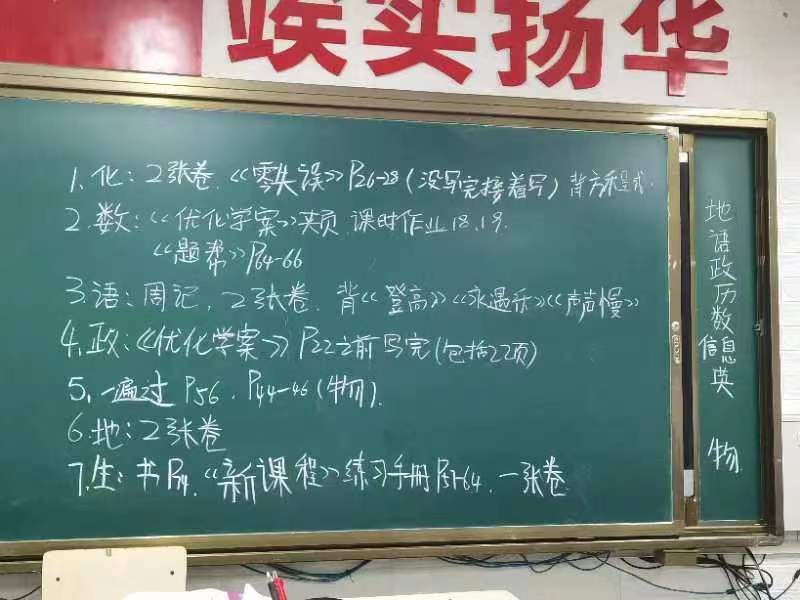 竢实扬华
1.化：2张卷.《零失误》P26-28（没写完接着写）背方程式.
2.数：《优化学案》夹页.课时作业18,19.
《题帮》P64-66
3.语：周记，2张卷.背《登高》《永遇乐》《声声慢》
4.政：《优化学案》P22之前写完（包括22页）
5.一遍过 P56，P44-46（物）.
6.地：2张卷
7.生：书P74.《新课程》练习手册P51-64，一张卷
地语政历数信息英 物